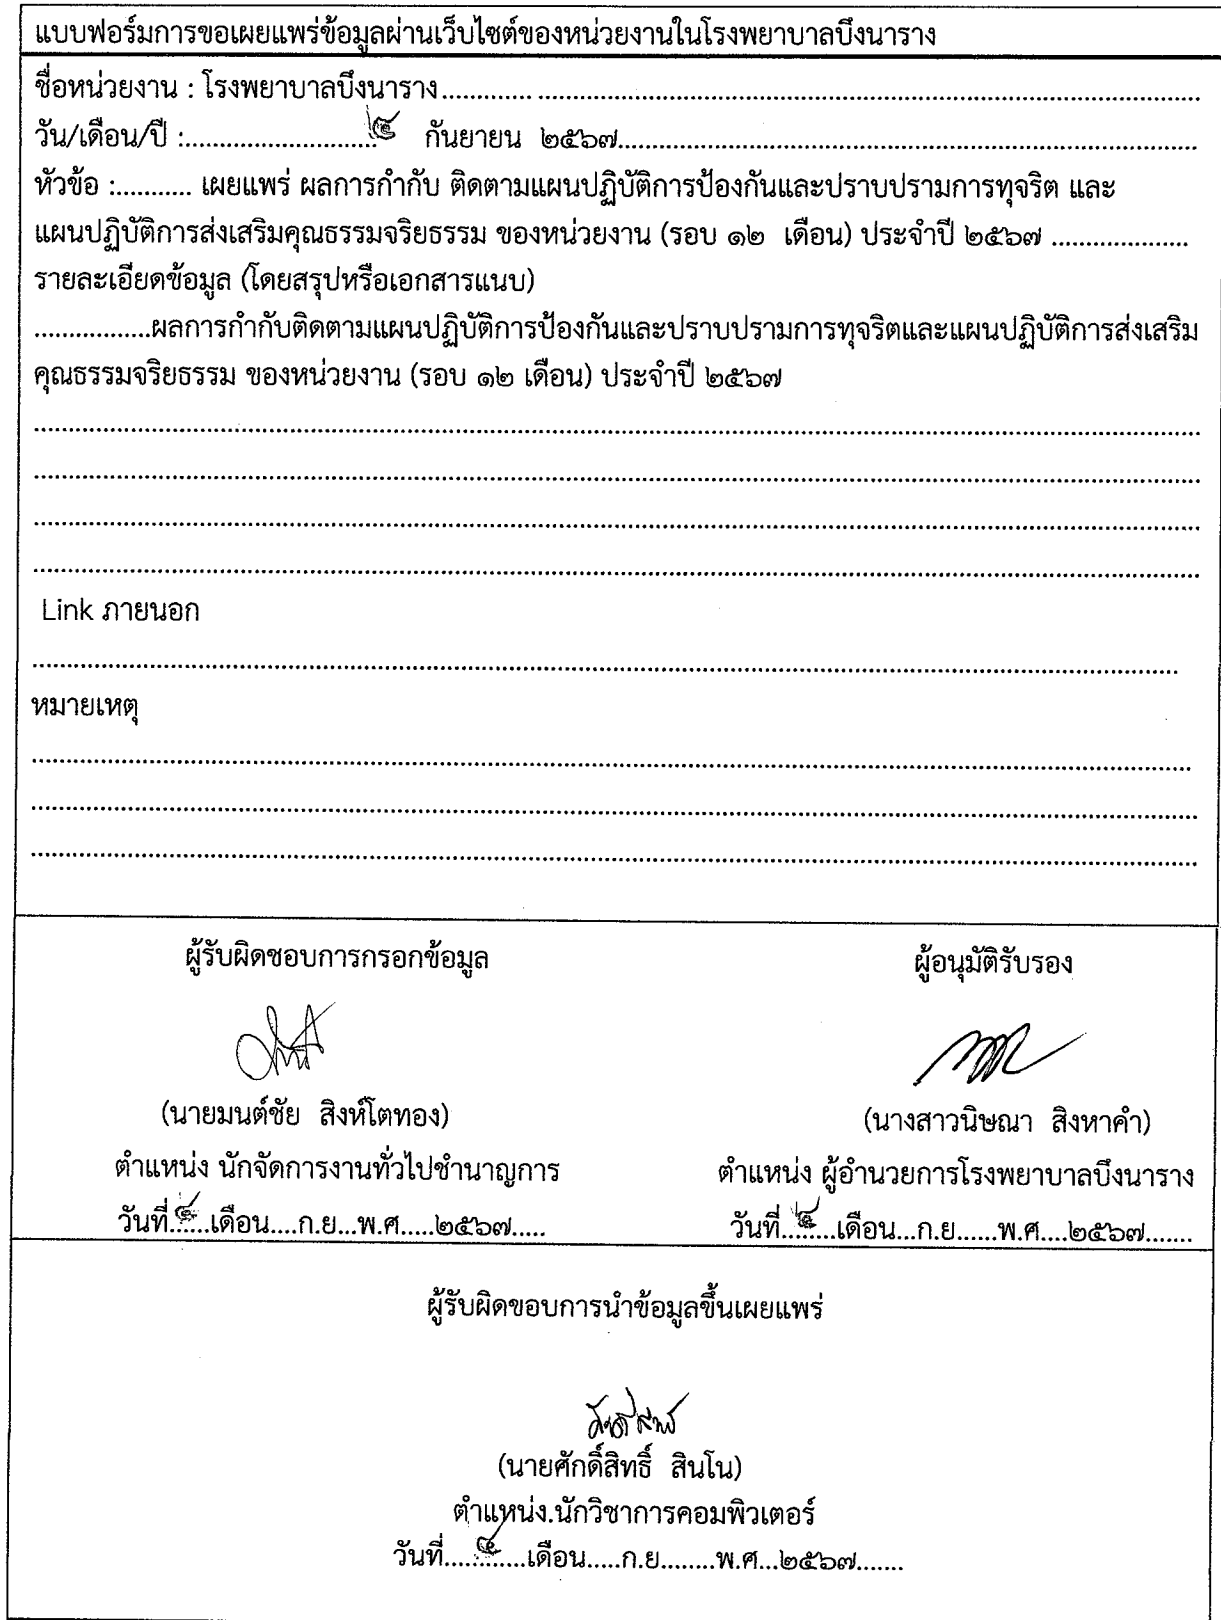 แบบฟอร์มการขอเผยแพร่ข้อมูลผ่านเว็บไซต์ของหน่วยงานในโรงพยาบาลบึงนาราง
ชื่อหน่วยงาน : โรงพยาบาลบึงนาราง.............................................
วัน/เดือน/ปี :........................... กันยายน ๒๕๖๗.............................................
หัวข้อ :........... เผยแพร่ ผลการกำกับ ติดตามแผนปฏิบัติการป้องกันและปราบปรามการทุจริต และ
แผนปฏิบัติการส่งเสริมคุณธรรมจริยธรรม ของหน่วยงาน (รอบ ๑๒ เดือน) ประจำปี ๒๕๖๗ ....................
รายละเอียดข้อมูล (โดยสรุปหรือเอกสารแนบ)
.................ผลการกำกับติดตามแผนปฏิบัติการป้องกันและปราบปรามการทุจริตและแผนปฏิบัติการส่งเสริม
คุณธรรมจริยธรรม ของหน่วยงาน (รอบ ๑๒ เดือน) ประจำปี ๒๕๖๗
Link ภายนอก
หมายเหตุ
ผู้รับผิดชอบการกรอกข้อมูล
(นายมนต์ชัย สิงห์โตทอง)
ตำแหน่ง นักจัดการงานทั่วไปชำนาญการ
วันที่......เดือน....ก.ย...พ.ศ.....๒๕๖๗.....
ผู้อนุมัติรับรอง
(นางสาวนิษณา สิงหาคำ)
ตำแหน่ง ผู้อำนวยการโรงพยาบาลบึงนาราง
วันที่........เดือน...ก.ย......พ.ศ....๒๕๖๗.......
ผู้รับผิดขอบการนำข้อมูลขึ้นเผยแพร่
(นายศักดิ์สิทธิ์ สินโน)
ตำแหน่ง.นักวิชาการคอมพิวเตอร์
วันที่............เดือน.....ก.ย........พ.ศ...๒๕๖๗.......